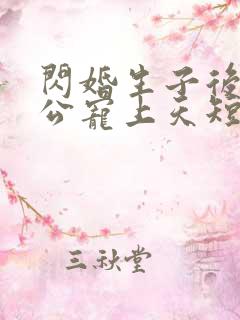 閃婚生子後
公寵上天短
三秋堂